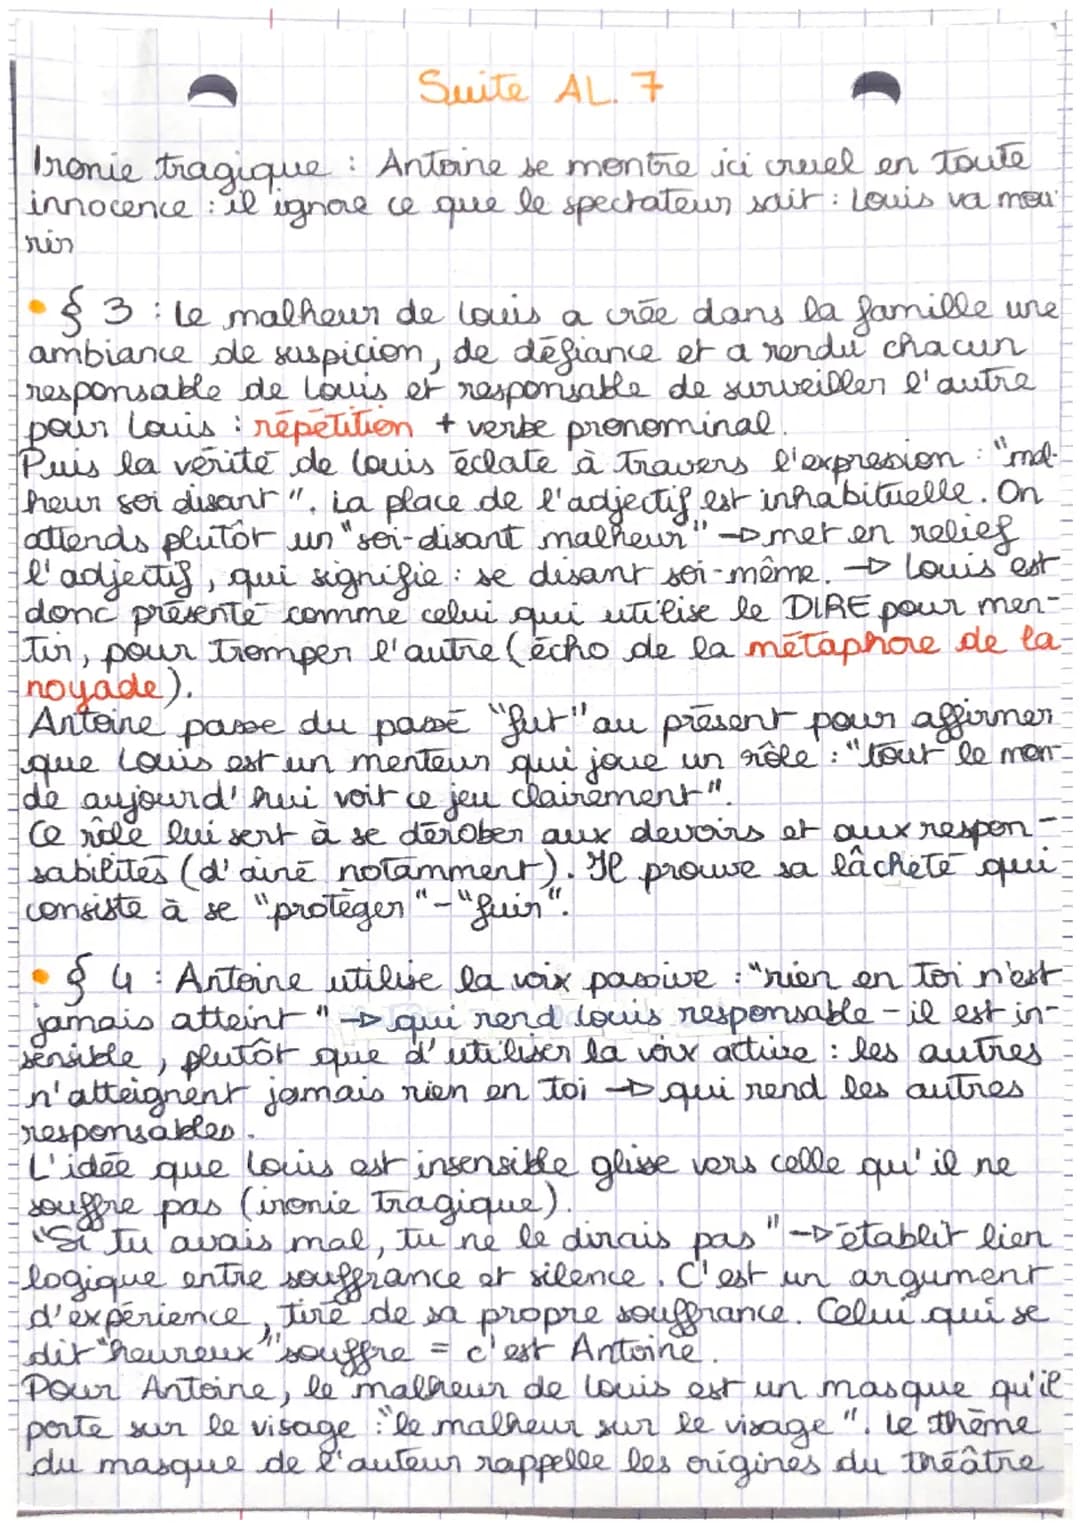 Suite AL. 7
Ironie tragique : Antoine se montre ici cruel en toute
innocence : il ignore ce que le spectateur sait : Louis va mou
rir
• § 3 : Le malheur de Louis a crée dans la famille une
ambiance de suspicion, de défiance et a rendu chacun
responsable de Louis et responsable de surveiller l'autre
pour Louis : répétition + verbe pronominal.
Puis la vérité de Louis éclate à travers l'expression : "mal-
heur soi disant". La place de l'adjectif est inhabituelle. On
attends plutôt un "soi-disant malheur" → met en relief
l'adjectif, qui signifie : se disant soi-même. → Louis est
donc présenté comme celui qui utilise le DIRE pour men-
tir, pour tromper l'autre (écho de la métaphore de la
noyade).
Antoine passe du passé "fut" au présent pour affirmer
que Louis est un menteur qui joue un rôle : "tout le mon-
de aujourd'hui voit ce jeu clairement".
Ce rôle lui sert à se dérober aux devoirs et aux respon-
sabilités (d'ainé notamment). Il prouve sa lâcheté qui
consiste à se "protéger" - "fuir".
• § 4 : Antoine utilise la voix passive : "rien en toi n'est
jamais atteint" → qui rend Louis responsable - il est in-
sensible, plutôt que d'utiliser la voix active : les autres
n'atteignent jamais rien en toi → qui rend les autres
responsables.
L'idée que Louis est insensible glisse vers celle qu'il ne
souffre pas (ironie tragique).
"Si tu avais mal, tu ne le dirais pas" → établit lien
logique entre souffrance et silence. C'est un argument
d'expérience, tiré de sa propre souffrance. Celui qui se
dit "heureux" souffre = c'est Antoine.
Pour Antoine, le malheur de Louis est un masque qu'il
porte sur le visage : "le malheur sur le visage". Le thème
du masque de l'auteur rappelle les origines du théâtre